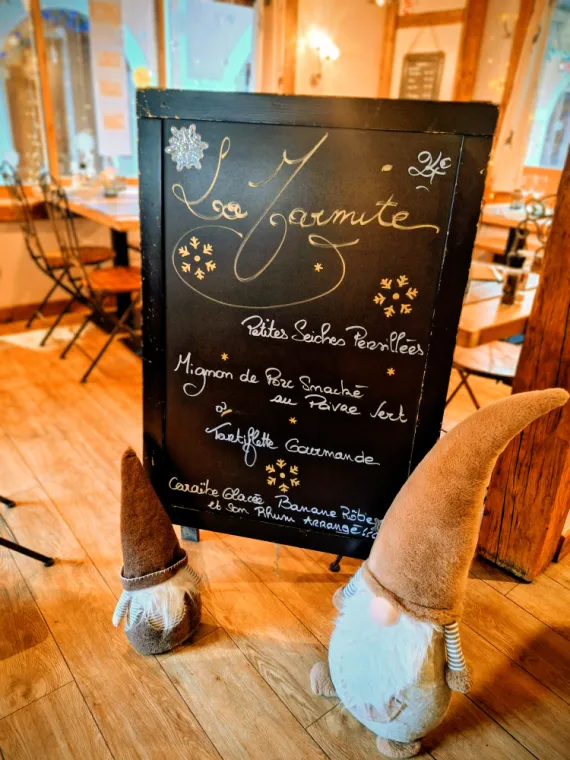 24€
La Marmite
Petites Seiches Persillées
Mignon de Porc Snacké
au Poivre Vert
ou
Tartiflette Gourmande
Caraïbe Glacée Banane Rôtie
et son Rhum Arrangé